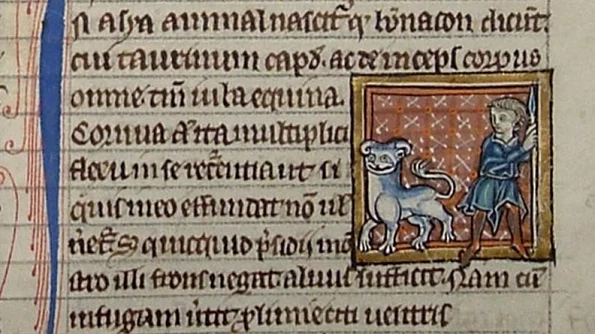 N asya animal nascit͛ qͥ bōnacon dicūt͛.
cui taurinum capd. ac deinceps corpus
omne tm̄ iuba equina.
Cornua a͛ ita multiplici
flexu in se recurrentia ut si
quis in eo effundat͛ nō ul
n͛et͛. S quicquid p̄sidii mō
stro illi frons negat. aluus sufficit. Nam cū
in fugam u͛tit͛ plumie citi uentris